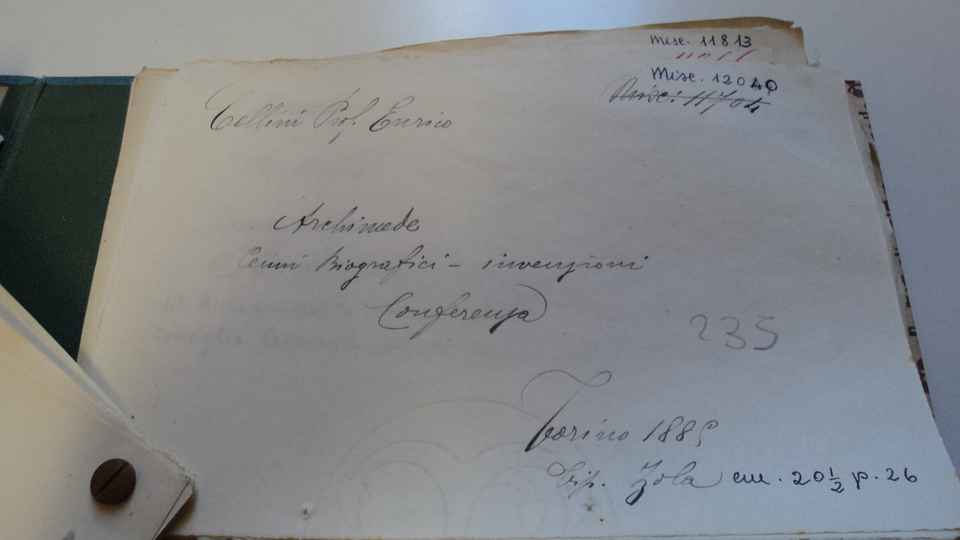 Misc. 11813
Misc. 12040
Misc. 11704
Cellini Prof. Enrico
Archimede
Cenni Biografici - invenzioni
Conferenza
235
Torino 1885
Tip. Zola cm. 20 1/2 p. 26